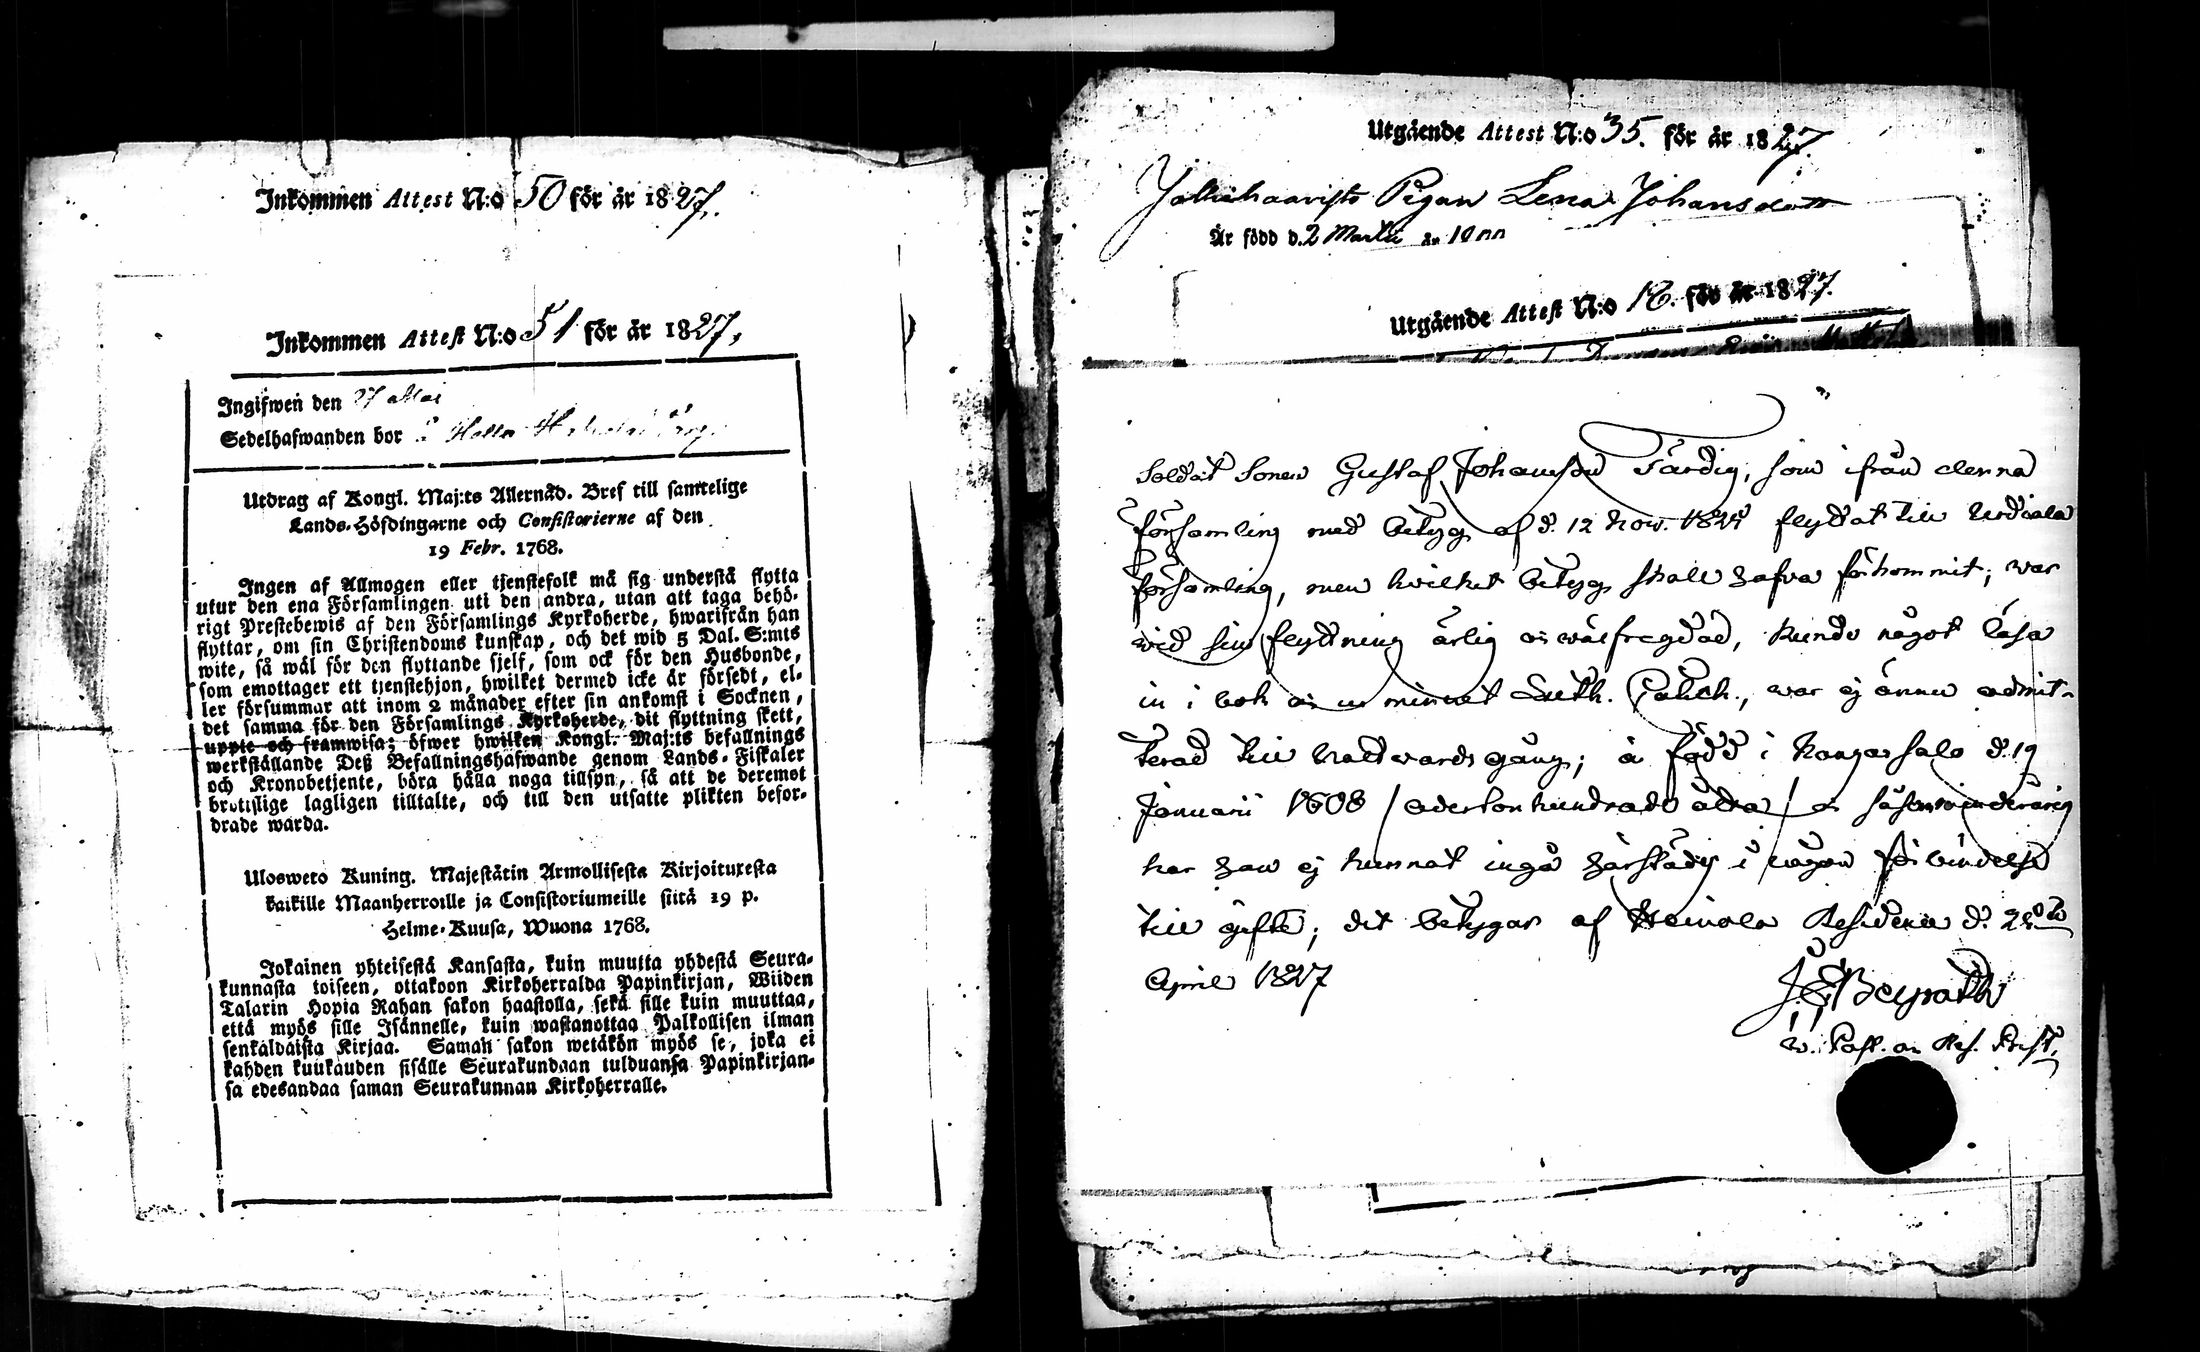 Inkommen Attest N:o 50 för år 1827.
Inkommen Attest N:o 51 för år 1827.
Ingifwen den 27 Maj
Sedelhafwanden bor
Utdrag af Kongl. Maj:ts Allernåd. Bref till samtelige
Lands-Höfdingarne och Consistorierne af den
19 Febr. 1768.
Ingen af Allmogen eller tjenstefolk må sig understå flytta
utur den ena Församlingen uti den andra, utan att taga behö-
rigt Prestebewis af den Församlings Kyrkoherde, hwarifrån han
flyttar, om sin Christendoms kunskap, och det wid 5 Dal. S:mts
wite, så wäl för den flyttande sjelf, som ock för den Husbonde,
som emottager ett tjenstehjon, hwilket dermed icke är försedt, el-
ler försummar att inom 2 månader efter sin ankomst i Socknen,
det samma för den Församlings Kyrkoherde, dit flyttning skett,
uppte och framwisa; öfwer hwilken Kongl. Maj:ts befallnings
werkställande Deß Befallningshafwande genom Lands-Fiskaler
och Kronobetjente, böra hålla noga tillsyn, så att de deremot
brottslige lagligen tilltalte, och till den utsatte plikten befor-
drade warda.
Ulosweto Kuning. Majestätin Armollisesta Kirjoituxesta
kaikille Maanherroille ja Consistoriumeille siitä 19 p.
Helme-Kuusa, Wuona 1768.
Jokainen yhteisestä Kansasta, kuin muutta yhdestä Seura-
kunnasta toiseen, ottakoon Kirkoherralda Papinkirjan, Wiiden
Talarin Hopia Rahan sakon haastolla, sekä sille kuin muuttaa,
että myös sille Isännelle, kuin wastanottaa Palkollisen ilman
senkaldaista Kirjaa. Saman sakon wetäkön myös se, joka ei
kahden kuukauden sisälle Seurakundaan tulduansa Papinkirjan-
sa edesandaa saman Seurakunnan Kirkoherralle.
Utgående Attest N:o 35. för år 1827.
Pigan Lena Johansdotter
Är född d. 2 Martii år
Utgående Attest N:o 12. för år 1827.
Soldat Sonen Gustaf Johansson Färdig, som ifrån denna
församling med betyg af d. 12 Nov. flyttat till Urdiala
församling, men hvilket betyg skall hafva förkommit; war
wid sin flyttning ärlig och wälfregdad, kunde något läsa
in i bok och ur minnet Luth. Catech., war ej ännu admit-
terad till Nattwards gång; är född i Kangasala d. 19
Januarii 1808 / aderton hundrade åtta / och såsom minderårig
har han ej kunnat ingå härstädes i någon förbindelse
till gifte; det betygar af Heinola Residence d. 28de
April 1827
W. Past. och Reg. Prest.